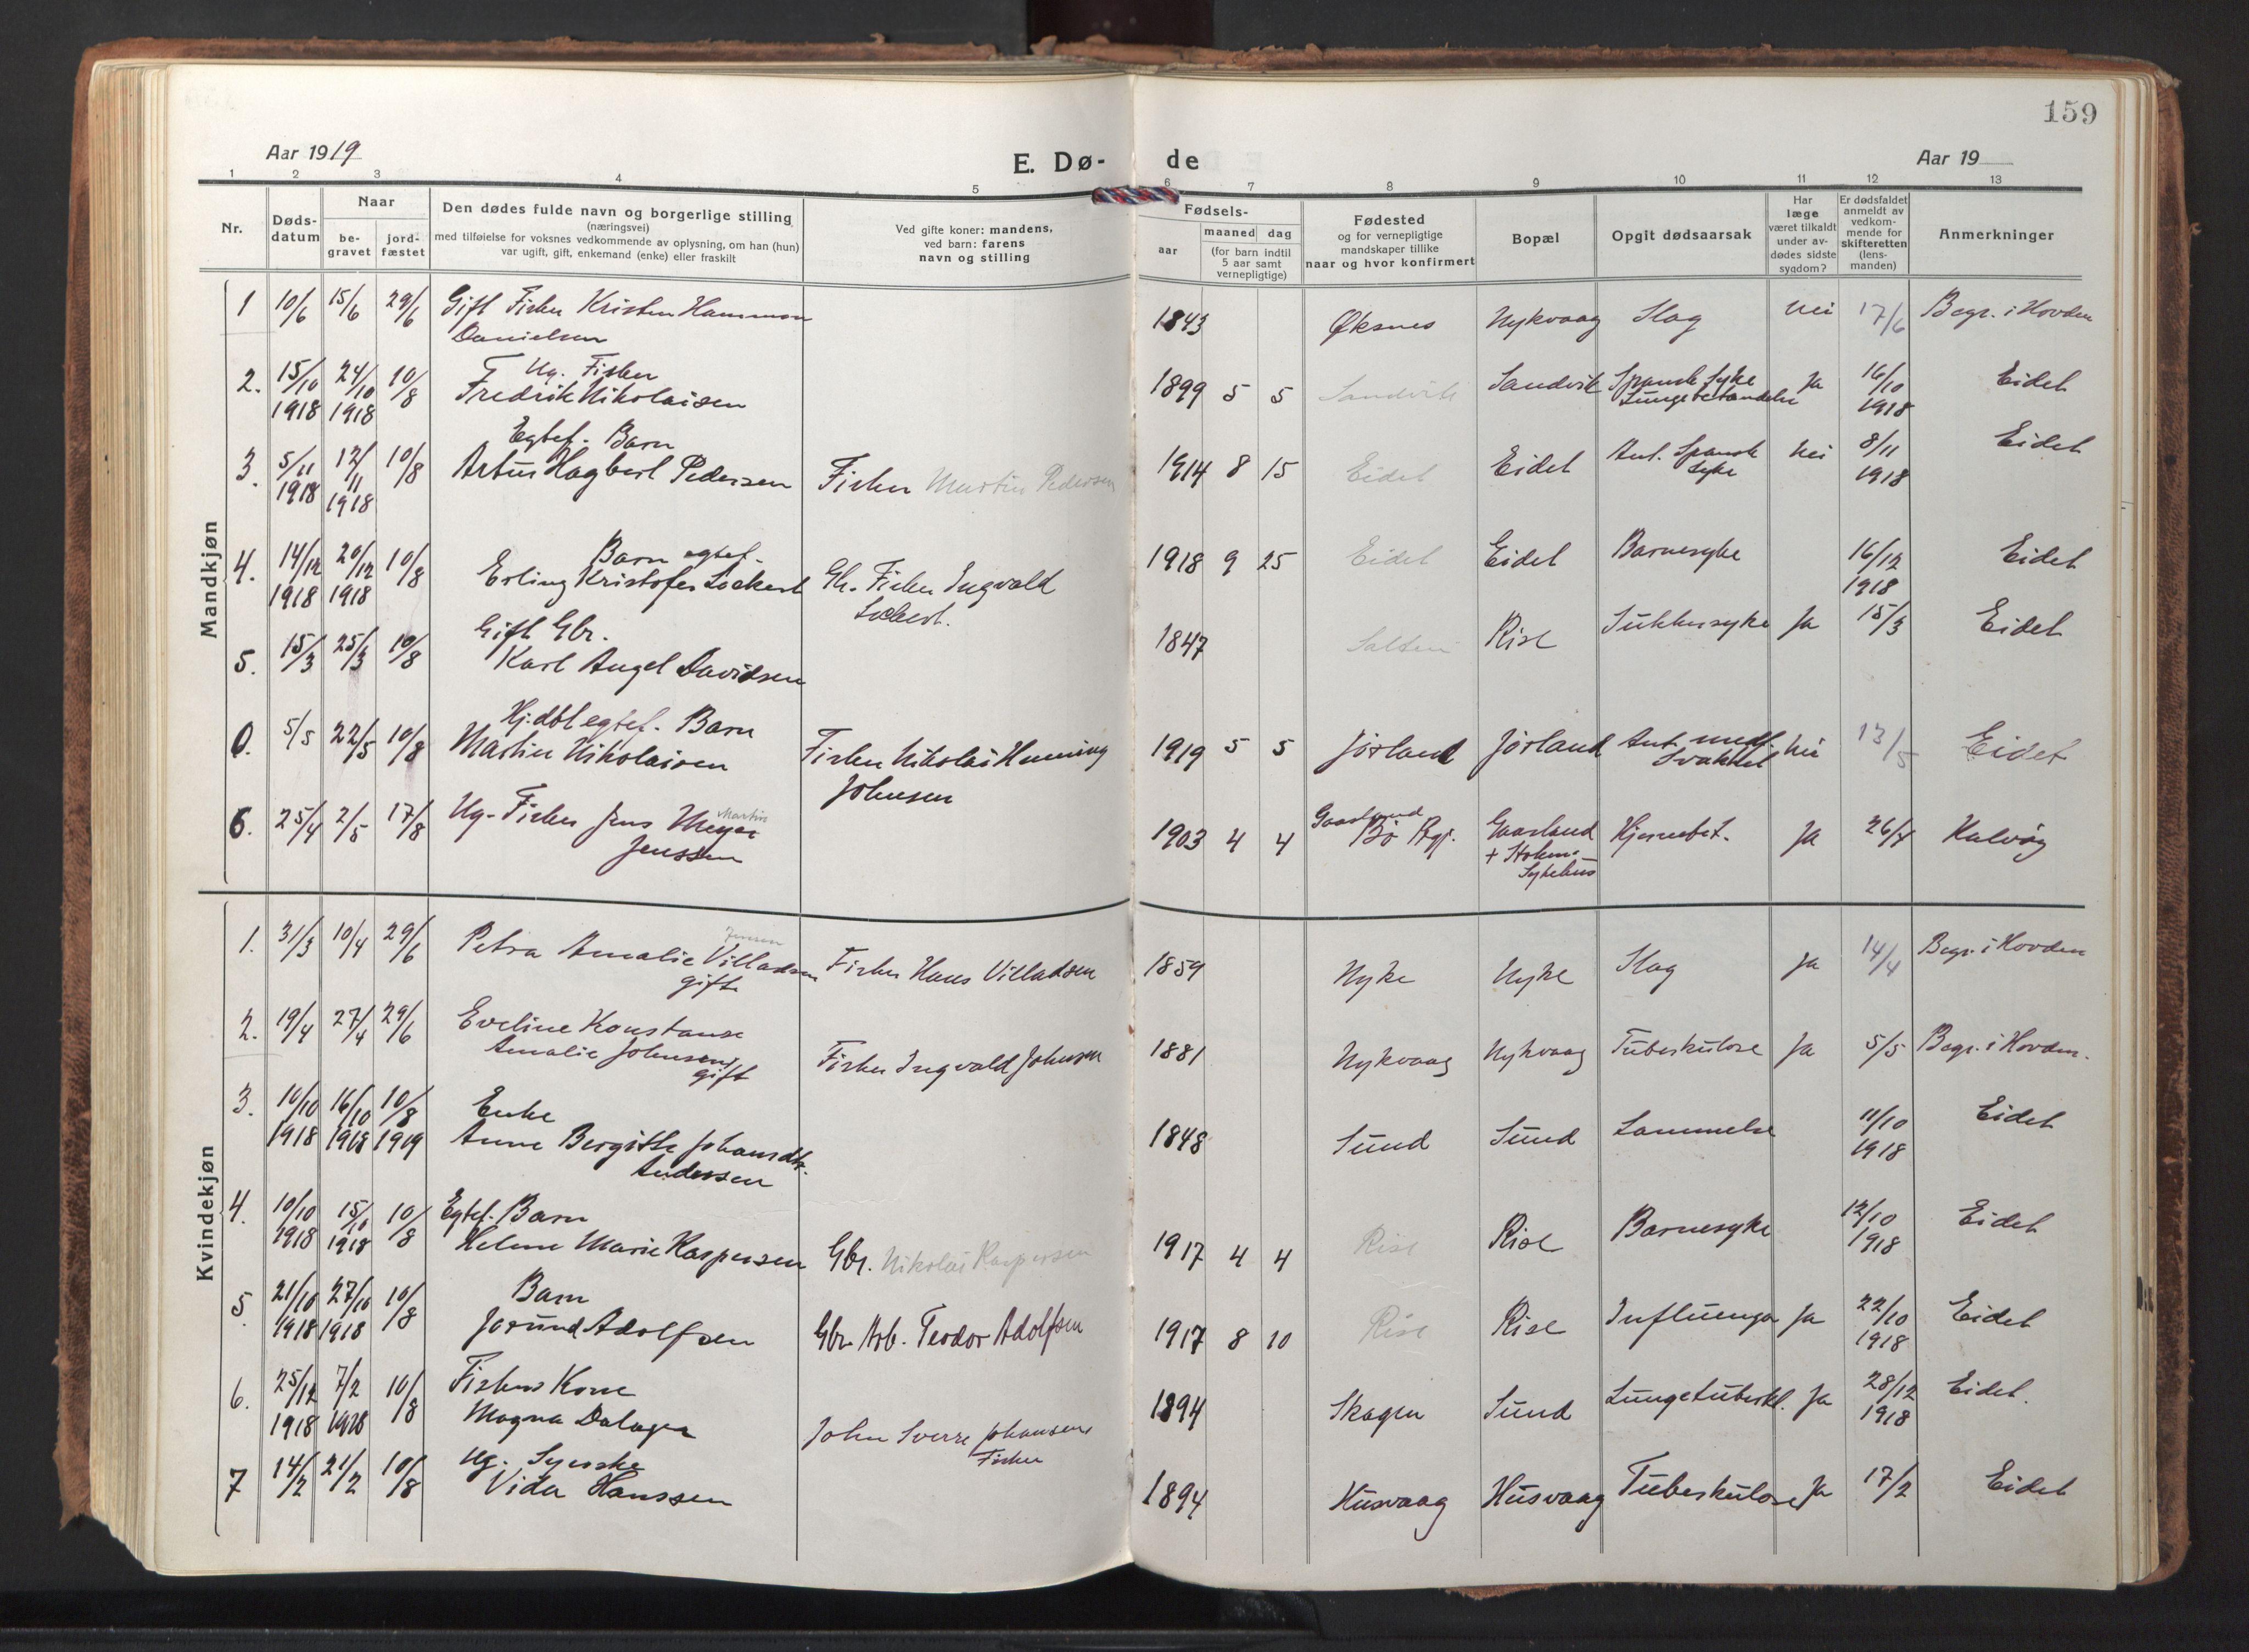 159
Aar 1919
E. Dø-
de
Aar 19
1 2 3 4 5 6 7 8 9 10 11 12 13
Nr.
Døds-
datum
Naar
be-
gravet
jord-
fæstet
Den dødes fulde navn og borgerlige stilling
(næringsvei)
med tilføielse for voksnes vedkommende av oplysning, om han (hun)
var ugift, gift, enkemand (enke) eller fraskilt
Ved gifte koner: mandens,
ved barn: farens
navn og stilling
Fødsels-
aar
maaned dag
(for barn indtil
5 aar samt
vernepligtige)
Fødested
og for vernepligtige
mandskaper tillike
naar og hvor konfirmert
Bopæl
Opgit dødsaarsak
Har
læge
været tilkaldt
under av-
dødes sidste
sygdom?
Er dødsfaldet
anmeldt av
vedkom-
mende for
skifteretten
(lens-
manden)
Anmerkninger
Mandkjøn
1 10/6 15/6 29/6 Gift Fisker Kristen Hammon 1843 Øksnes Nykvaag Slag Nei 17/6 Begr. i Hovden
Danielsen
Ug. Fisker
2. 15/10 24/10 10/8 Fredrik Nikolaisen 1899 5 5 Sandvik Sandvik Spansk Syke Ja 16/10 Eidet
1918 1918 Lungebetændelse 1918
Egtef. Barn
3. 5/11 12/11 10/8 Artur Hagbert Pedersen Fisker Martin Pedersen 1914 8 15 Eidet Eidet Ant. Spansk Nei 8/11 Eidet
1918 1918 Syke 1918
Barn egtef.
4. 14/12 20/12 10/8 Erling Kristofer Lockert Gb. Fisker Ingvald 1918 9 25 Eidet Eidet Barnesyke 16/12 Eidet
1918 1918 Lockert. 1918
Gift Gbr.
5. 15/3 25/3 10/8 Karl Angel Davidsen 1847 Salten Rise Sukkersyke Ja 15/3 Eidet
Hj.døbt egtef. Barn
0. 5/5 22/5 10/8 Martin Nikolaisen Fisker Nikolai Henning 1919 5 5 Jørland Jørland Ant. medf. Nei 13/5 Eidet
Johnsen Svakhet
6. 25/4 2/5 17/8 Ug. Fisker Jens Meyer Martin 1903 4 4 Gaasland Bø Pgj. Gaasland Hjernebet. Ja 26/4 Malvåg
Jenssen + Stokm.
Sykehus
Kvindekjøn
1. 31/3 10/4 29/6 Petra Amalie Jensen Villadsen Fisker Hans Villadsen 1859 Nyke Nyke Slag Ja 14/4 Begr. i Hovden
gift
2. 19/4 27/4 29/6 Eveline Konstanse 1881 Nykvaag Nykvaag Tuberkulose Ja 5/5 Begr. i Hovden.
Amalie Johnsen, Fisker Ingvald Johnsen
gift
3. 10/10 16/10 10/8 Enke 1848 Sund Sund Lammelse 11/10 Eidet
1918 1918 1919 Anne Bergitte Johansdtr. 1918
Anderssen
4. 10/10 15/10 10/8 Egtef. Barn 12/10 Eidet
1918 1918 Helene Marie Kaspersen Gbr. Nikolai Kaspersen 1917 4 4 Rise Rise Barnesyke 1918
5. 21/10 27/10 10/8 Barn 22/10 Eidet
1918 1918 Jorund Adolfsen Gbr. Arb. Teodor Adolfsen 1917 8 10 Rise Rise Influenga Ja 1918
6. 25/12 7/2 10/8 Fiskers Kone 28/12 Eidet.
1918 Magna Dalager John Sverre Johansen 1894 Skagen Sund Lungetuberkl. Ja 1918
Fisker
7 14/2 21/2 10/8 Ug. Syerske 17/2 Eidet
Vida Hanssen 1894 Husvaag Husvaag Tuberkulose Ja